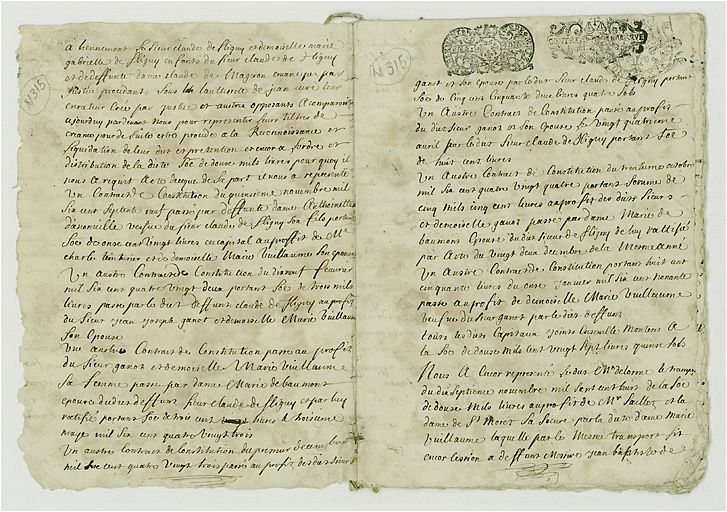 a Liennement Sr Sieur claude de fligny et demoiselle marie
gabrielle de fligny enfants du Sieur claude de fligny
et de deffunte dame claude de Magron emancipes par
Justice procedant Sous l'authorite de jean
curateur Crée par justice et autres opposants A Comparu
ajourduy pardevant Nous pour representer Leurs tiltres de
creance pour de Suite estre procédé a la Reconnoissance et
liquidation de leur dus et pretention et encor a Lordre et
distribution de la dite Soe de douse mils livres pourquoy il
nous a requit Acte de ce que de Sa part il nous a représenté
Un Contract de Constitution du quensieme novembre mil
Six cent Septente neuf passé par deffunte dame Anthoinette
vefve du Sieur claude de fligny Son fils portant
Soe de onse cent vingt livres en capital au proffit de Mr
charle et demoiselle Marie Vuillaume Son epouse
Un autre Contract de Constitution du dixneuf fevrier
mil Six cent quatre Vingt deux portant Soe de trois mils
livres passé par le dit deffunt claude de fligny au profit
du Sieur jean joseph ganot et demoiselle Marie Vuillaume
Son Epouse
Un autre Contract de Constitution passé au proffit
du Sieur ganot et demoiselle Marie Vuillaume
Sa femme passé par dame Marie de beaumont
epouse du dit deffunt Sieur claude de fligny et par luy
ratifié portant Soe de trois cent livres le troisieme
maye mil Six cent quatre vingt trois
Un autre contract de Constitution du premier decembre
mil Six cent quatre Vingt trois passé au profit des dits Sieur
N 315
N 315
ganot et Son Epouse par le dit Sieur claude de fligny portant
Soe de Cinq cent Cinquante deux livres quatre Sols
Un Autre Contract de Constitution passé au profit
du dit Sieur ganot et Son Epouse le Vingt quatrieme
avril par le dit Sieur Claude de fligny portant Soe
de huit cent livres
Un Autre Contract de Constitution du octobre
mil Six cent quatre vingt quatre portant Somme de
cinq mils cinq cent livres au profit des dits Sieurs
et demoiselle ganot passé par dame Marie de
baumons Epouse du dit Sieur de fligny de luy ratiffié
par Acte du Vingt deux decembre de la Mesme Anné
Un Autre Contract de Constitution portant huit cent
cinquante livres du onse janvier mil Six cent Nonante
passé a profit de demoiselle Marie Vuillaume
veufve du Sieur ganot par le dit deffunt
touts les dits Capitaux joints Ensemble Montent A
la Soe de douse Mils cent Vingt Sept livres quinse Sols
Nous A Encor representé le dit Mr delorme le transport
du dix Septieme novembre mil Sept cent huit de la Soe
de douse Mils livres au profit de Mr Saillet et la
dame de St Moret Sa Soeur par la dite dame Marie
Vuillaume laquelle par le Mesme transport fit
encor Cession a deffunt Mesire jean baptiste de